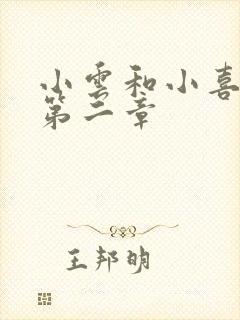 小雲和小喜
第二章
王邦明